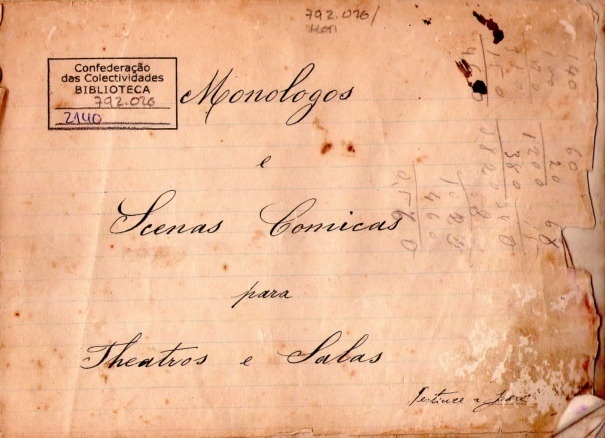 792.026/
Mon
Confederação
das Colectividades
BIBLIOTECA
792.026
2140
Monologos
e
Scenas Comicas
para
Theatros e Salas
Pertence a José